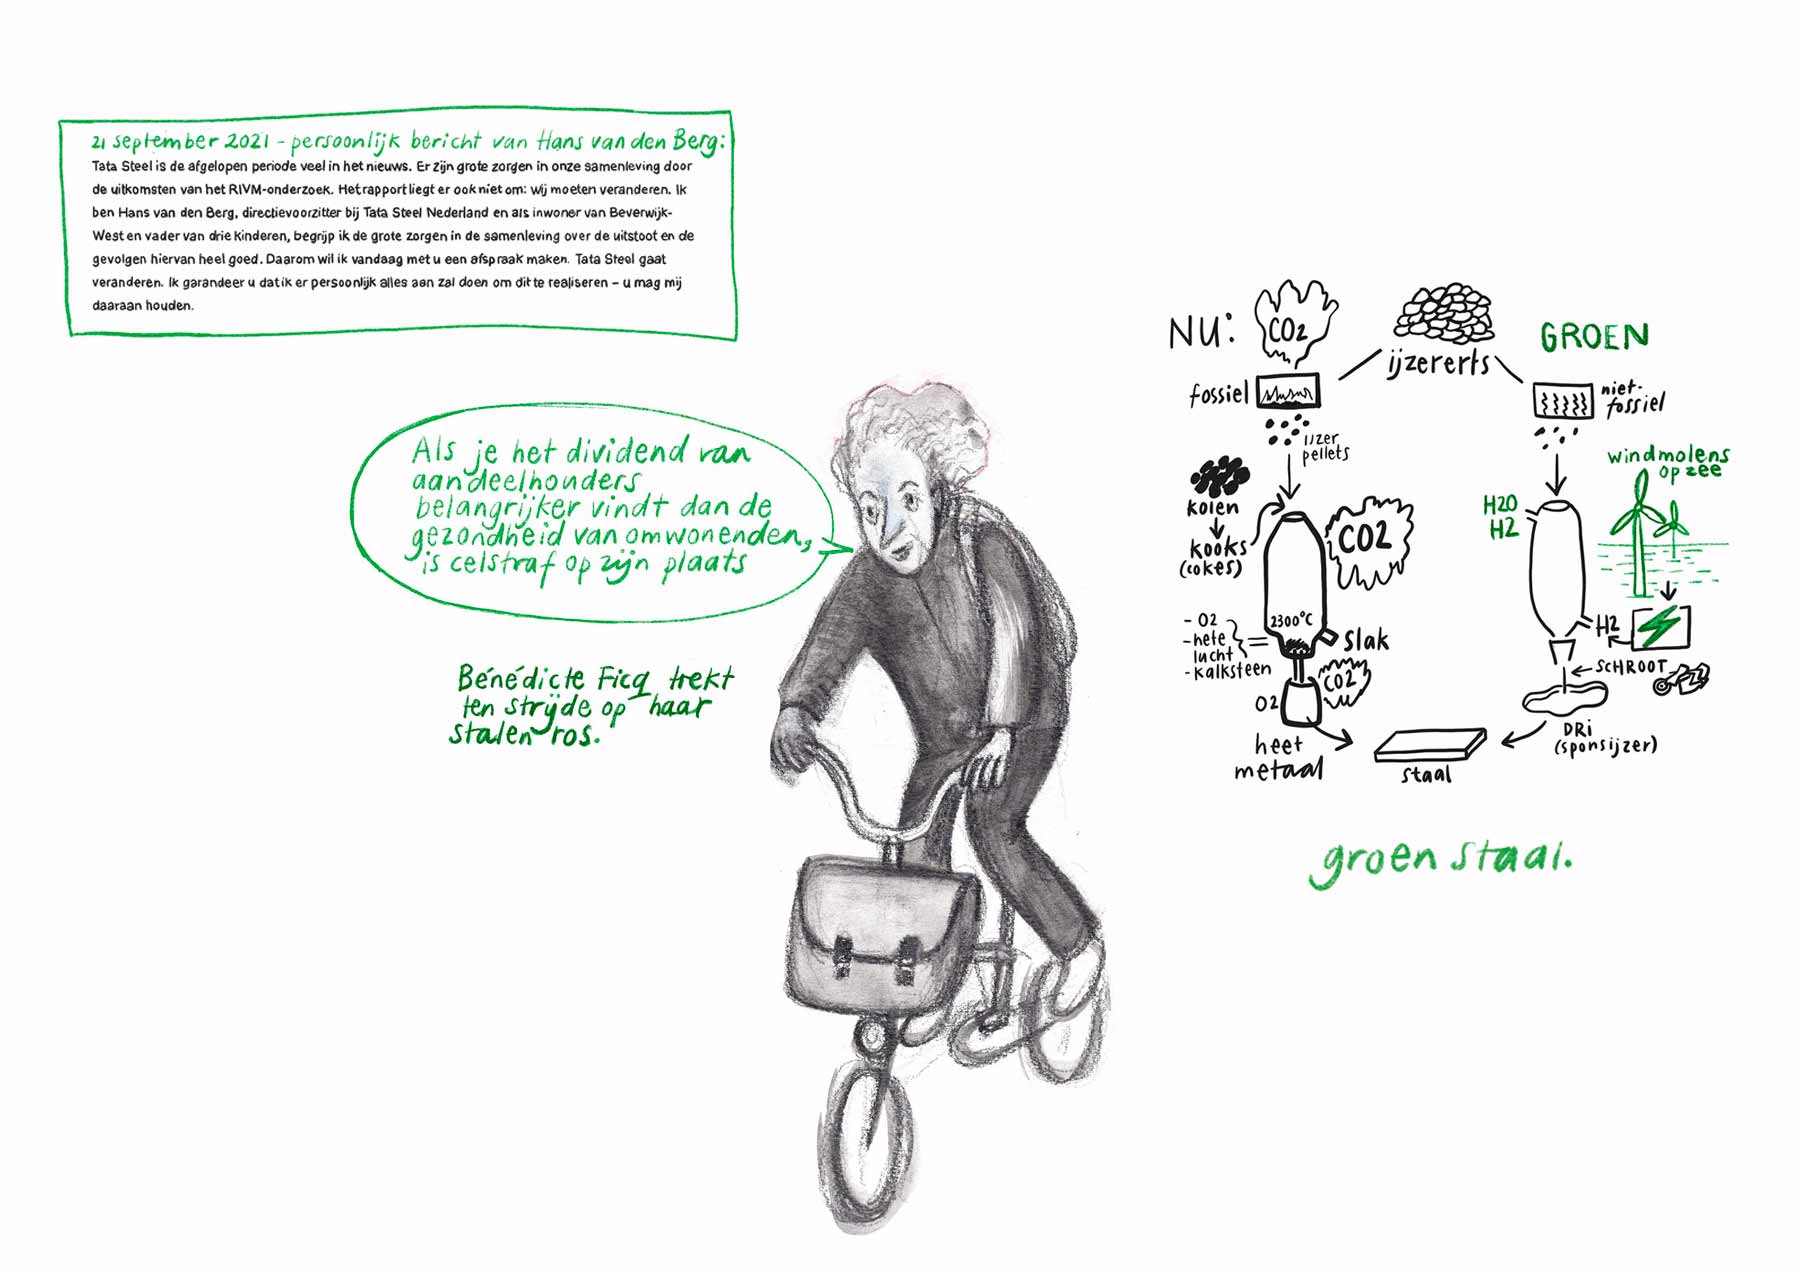 21 september 2021 - persoonlijk bericht van Hans van den Berg:
Tata Steel is de afgelopen periode veel in het nieuws. Er zijn grote zorgen in onze samenleving door
de uitkomsten van het RIVM-onderzoek. Het rapport liegt er ook niet om: wij moeten veranderen. Ik
ben Hans van den Berg, directievoorzitter bij Tata Steel Nederland en als inwoner van Beverwijk-
West en vader van drie kinderen, begrijp ik de grote zorgen in de samenleving over de uitstoot en de
gevolgen hiervan heel goed. Daarom wil ik vandaag met u een afspraak maken. Tata Steel gaat
veranderen. Ik garandeer u dat ik er persoonlijk alles aan zal doen om dit te realiseren – u mag mij
daaraan houden.
Als je het dividend van
aandeelhouders
belangrijker vindt dan de
gezondheid van omwonenden,
is celstraf op zijn plaats
Bénédicte Ficq trekt
ten strijde op haar
stalen ros.
NU:
CO2
ijzererts
GROEN
fossiel
niet-
fossiel
ijzer
pellets
kolen
kooks
(cokes)
CO2
2300°C
- O2
- hete
lucht
- kalksteen
slak
CO2
O2
heet
metaal
staal
windmolens
op zee
H2O
H2
H2
SCHROOT
DRi
(sponsijzer)
groen staal.